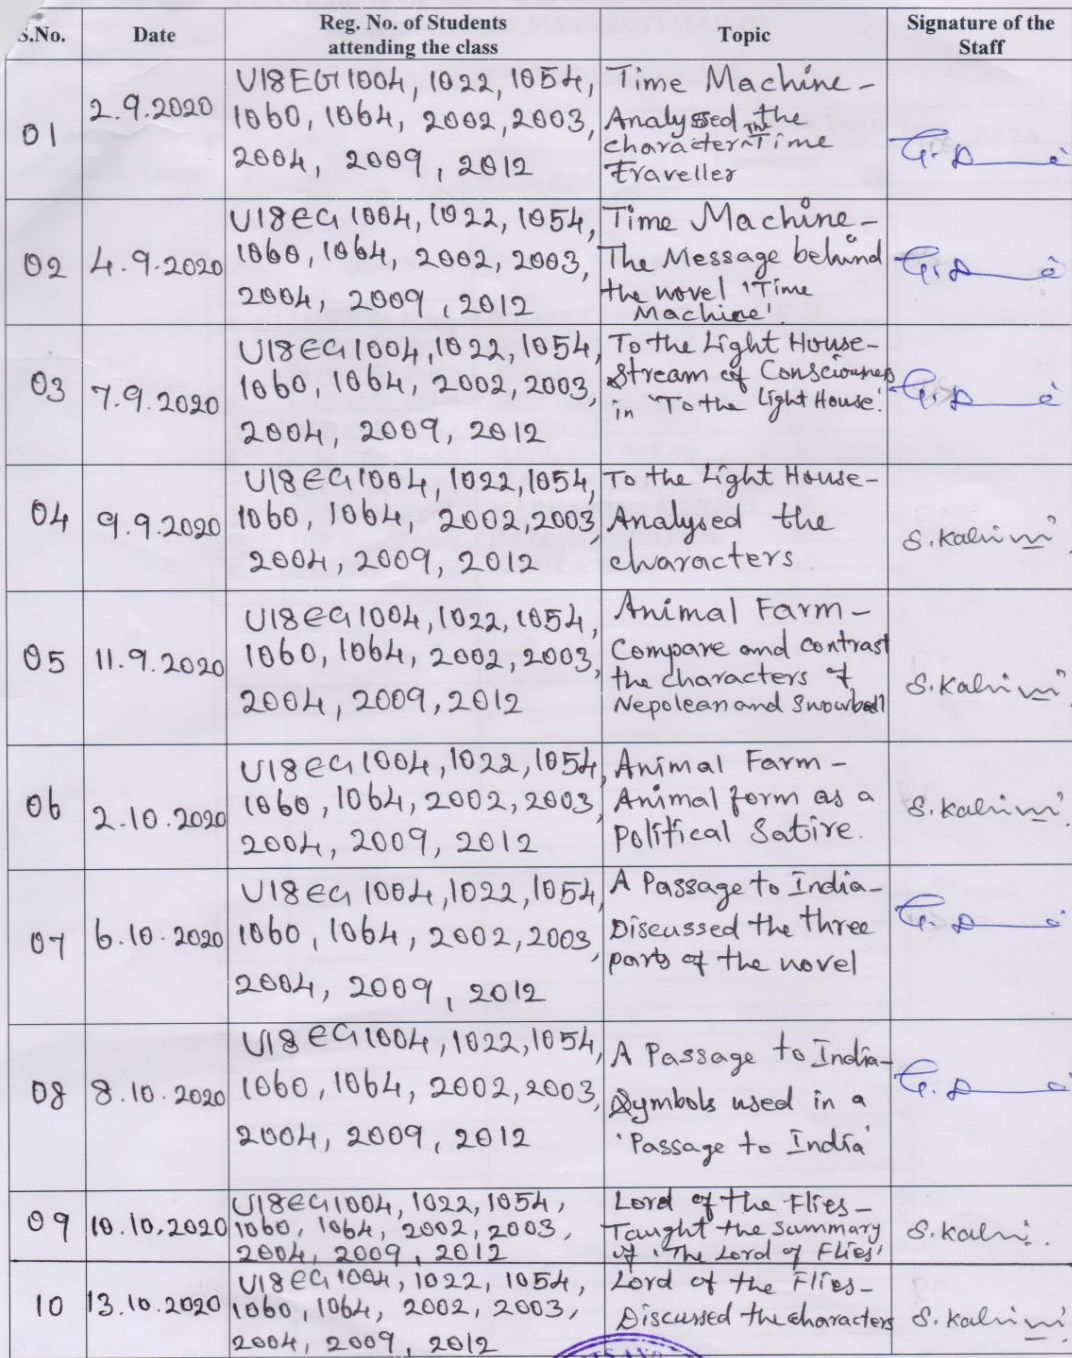 S.No. Date Reg. No. of Students attending the class Topic Signature of the Staff
01 2.9.2020
U18EG1004, 1022, 1054,
1060, 1064, 2002, 2003,
2004, 2009, 2012
Time Machine -
Analyssed the
character The Time
Traveller
02 4.9.2020
U18EG1004, 1022, 1054,
1060, 1064, 2002, 2003,
2004, 2009, 2012
Time Machine -
The Message behind
the novel 'Time
Machine'.
03 7.9.2020
U18EG1004, 1022, 1054,
1060, 1064, 2002, 2003,
2004, 2009, 2012
To the Light House -
Stream of Consciousness
in 'To the Light House'.
04 9.9.2020
U18EG1004, 1022, 1054,
1060, 1064, 2002, 2003,
2004, 2009, 2012
To the Light House -
Analysed the
characters
05 11.9.2020
U18EG1004, 1022, 1054,
1060, 1064, 2002, 2003,
2004, 2009, 2012
Animal Farm -
Compare and contrast
the characters of
Nepolean and Snowball
06 2.10.2020
U18EG1004, 1022, 1054,
1060, 1064, 2002, 2003,
2004, 2009, 2012
Animal Farm -
Animal form as a
Political Satire.
07 6.10.2020
U18EG1004, 1022, 1054,
1060, 1064, 2002, 2003,
2004, 2009, 2012
A Passage to India -
Discussed the three
parts of the novel
08 8.10.2020
U18EG1004, 1022, 1054,
1060, 1064, 2002, 2003,
2004, 2009, 2012
A Passage to India -
Symbols used in a
'Passage to India'
09 10.10.2020
U18EG1004, 1022, 1054,
1060, 1064, 2002, 2003,
2004, 2009, 2012
Lord of the Flies -
Taught the summary
of 'The Lord of Flies'
10 13.10.2020
U18EG1004, 1022, 1054,
1060, 1064, 2002, 2003,
2004, 2009, 2012
Lord of the Flies -
Discussed the characters